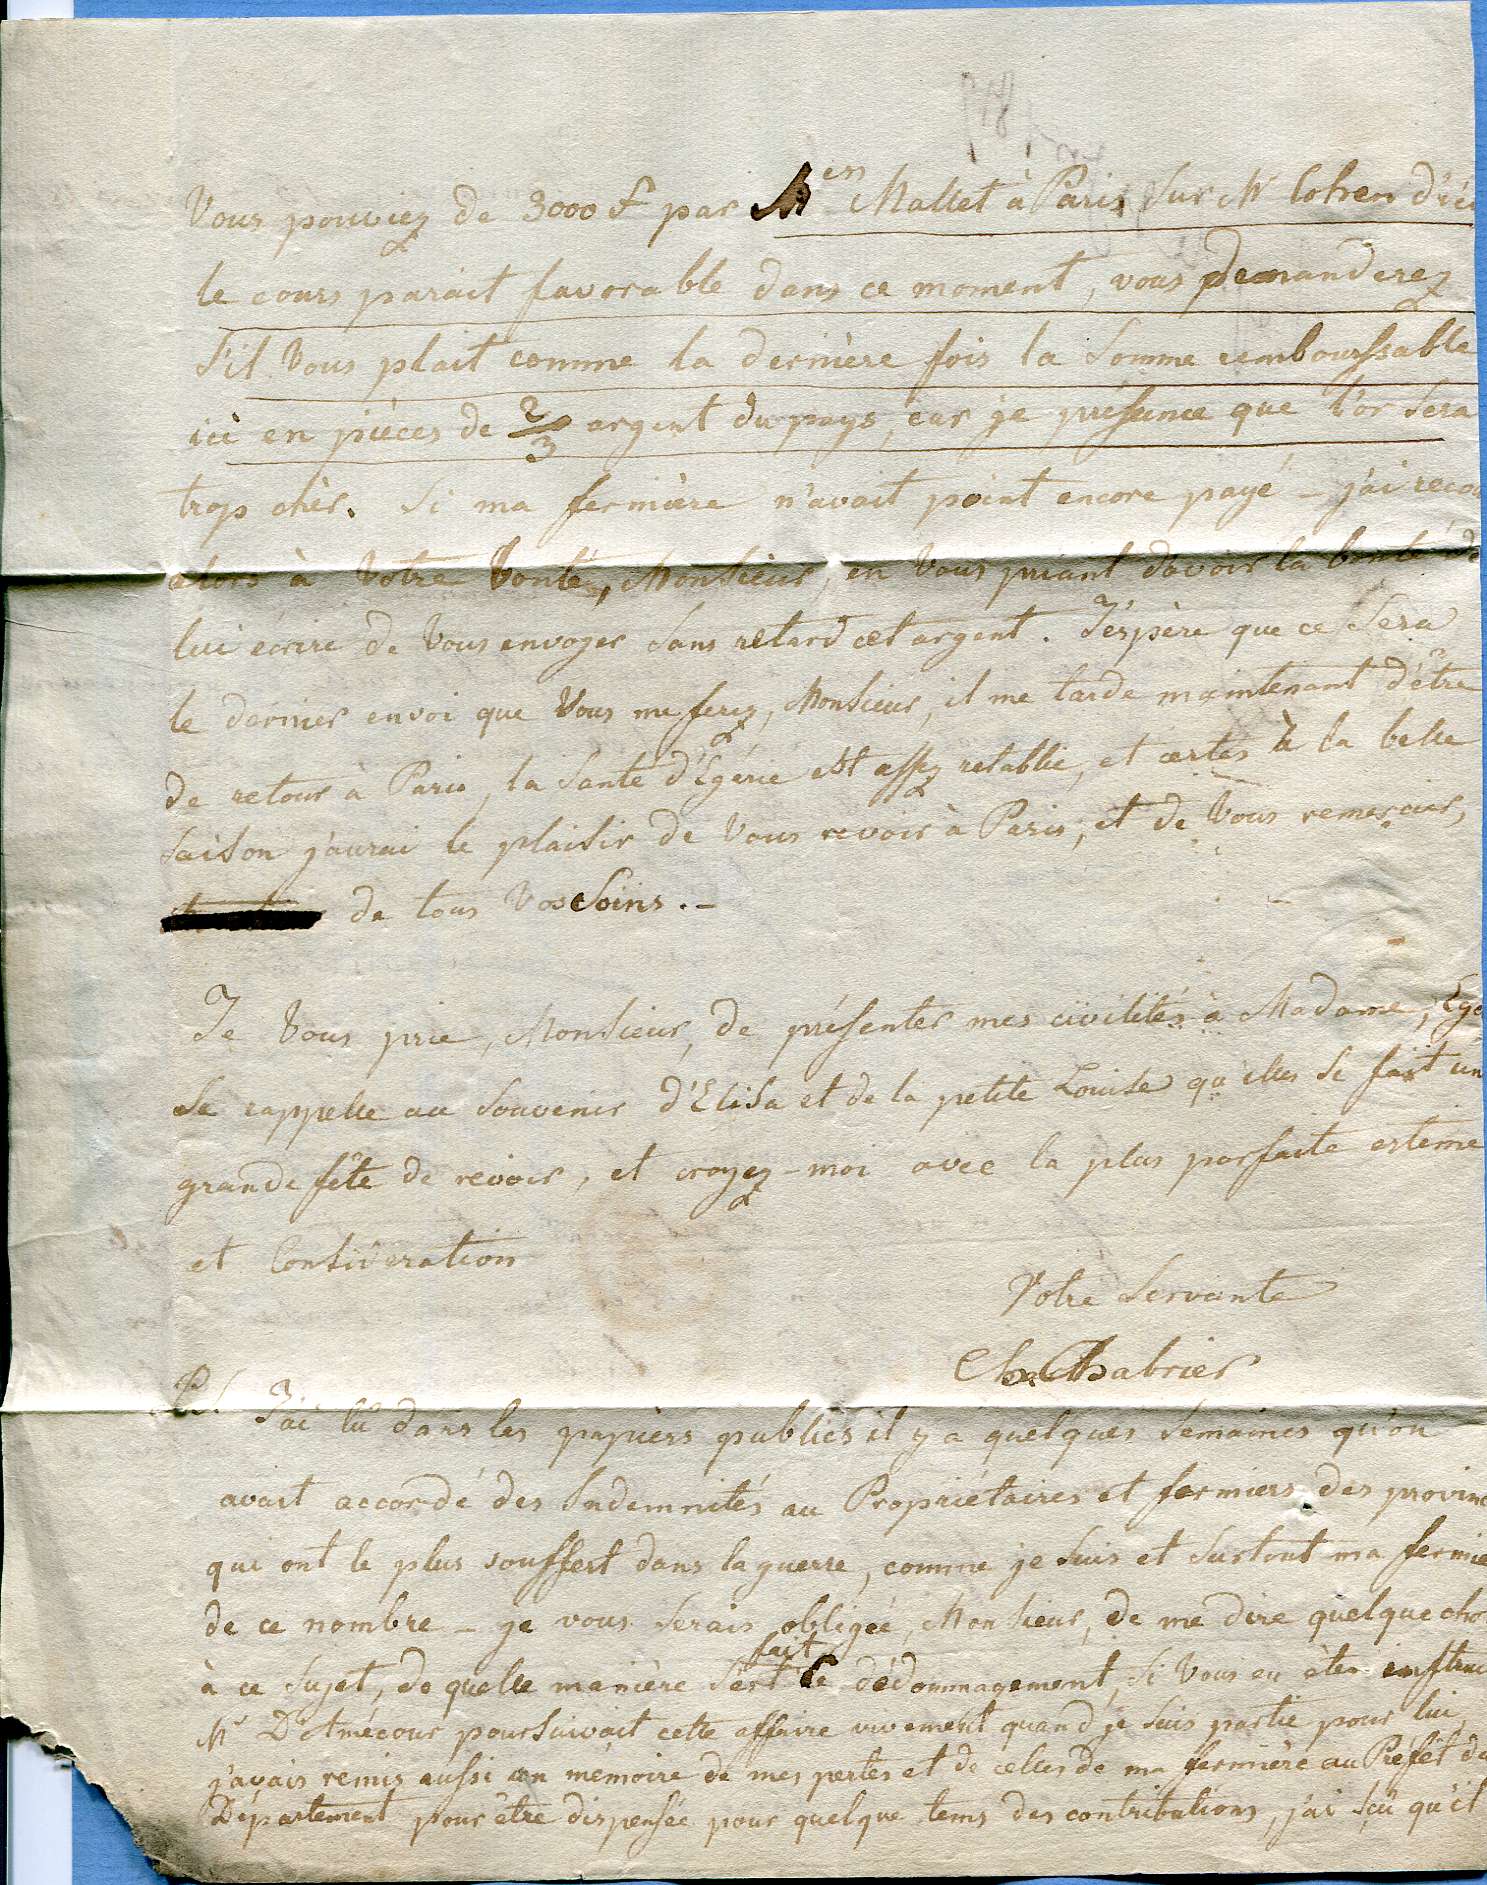 Vous pouviez de 3000 f par Mr en Mallet à Paris sur Mr Cohen d'ici
le cours parait favorable dans ce moment, vous demanderez
s'il Vous plait comme la dernière fois la Somme remboursable
ici en pièces de 2/3 argent du pays, car je présume que l'or sera
trop chèr. Si ma fermière n'avait point encore payé - j'ai recou
alors à Votre bonté, Monsieur, en Vous priant d'avoir la bonté de
lui écrire de Vous envoyer sans retard cet argent. J'éspère que ce sera
le dernier envoi que Vous me ferez, Monsieur, il me tarde maintenant d'être
de retour à Paris, la santé d'Egérie est assez retablie, et certes à la belle
saison j'aurai le plaisir de Vous revoir à Paris, et de Vous remercier,
de tous Vos Soins. -
Je Vous prie, Monsieur, de présenter mes civilités à Madame, Egé
se rappelle au souvenir d'Elisa et de la petite Louise qu'elles se fait un
grande fête de revoir, et croyez-moi avec la plus parfaite estime
et Considération
Votre Servante
Ch. Chabrier
PS. J'ai lû dans les papiers publics il y a quelques semaines qu'on
avait accordé des Indemnités au Propriétaires et fermiers des provinc
qui ont le plus souffert dans la guerre, comme je suis et surtout ma fermie
de ce nombre - je vous serais obligée, Monsieur, de me dire quelque cho
à ce sujet, de quelle manière s'est fait le dédommagement, si Vous en êtes instruit
Mr D'Otmécour poursuivait cette affaire vivement quand je suis partie pour lui,
j'avais remis aussi un mémoire de mes pertes et de celles de ma fermière au Préfêt du
Département pour être dispensée pour quelque tems des contributions, j'ai sçu qu'il